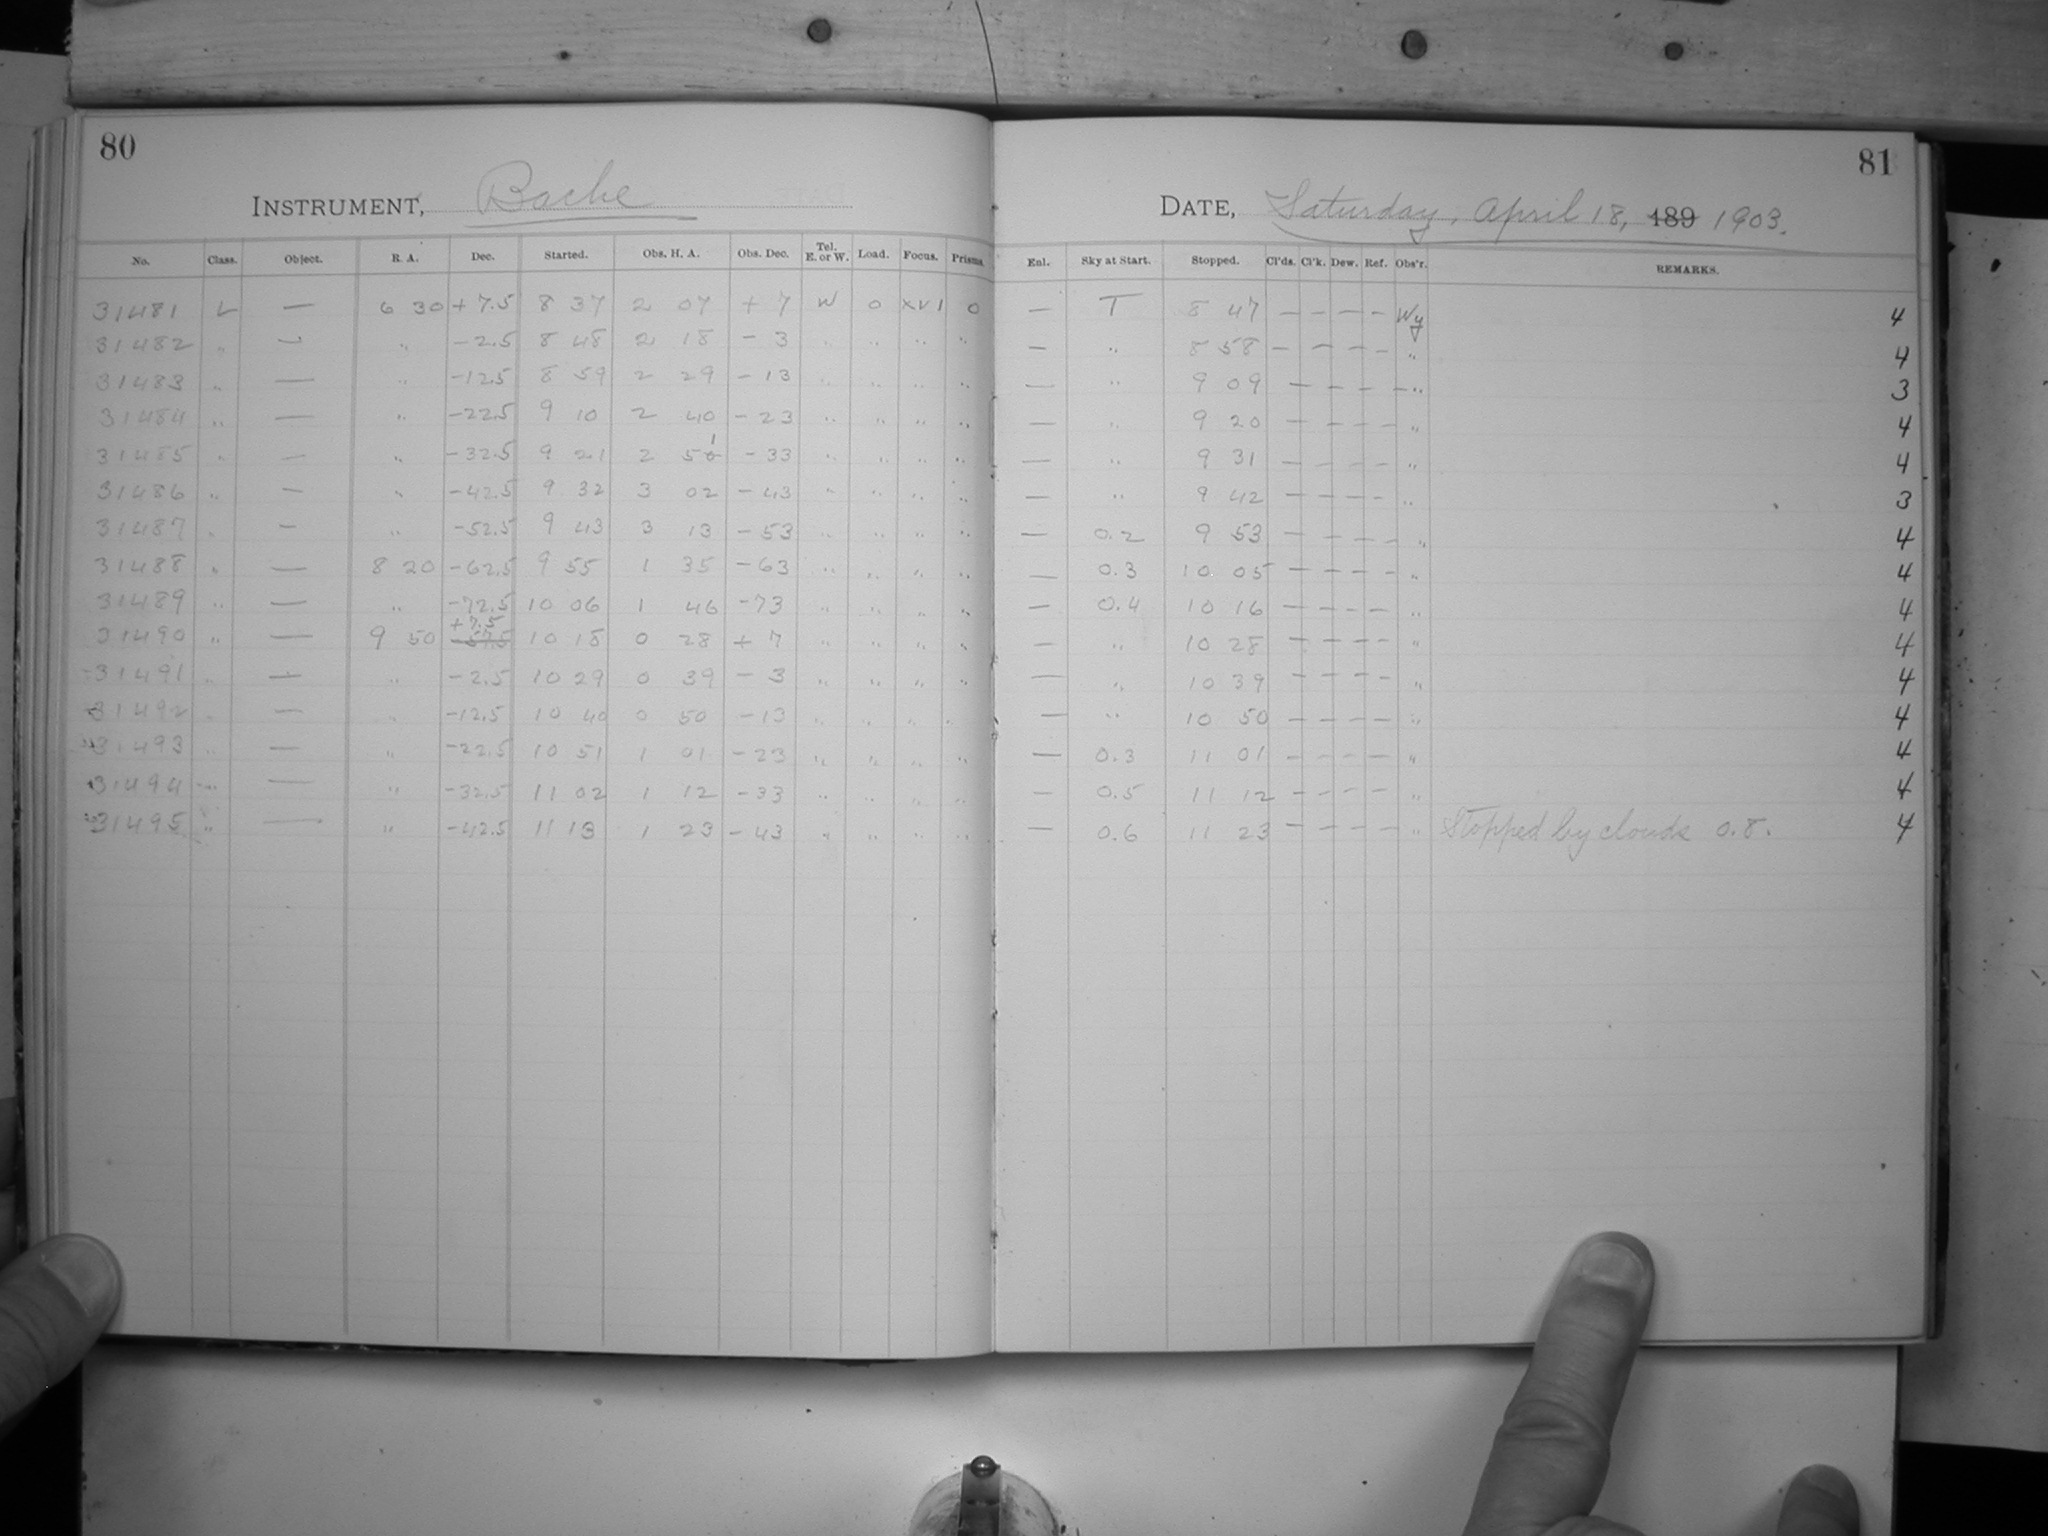 80
INSTRUMENT, Bache
No. Class. Object. R. A. Dec. Started. Obs. H. A. Obs. Dec. Tel. E. or W. Load. Focus. Prisms.
31481 L — 6 30 +7.5 8 37 2 07 +7 W 0 XVI 0
31482 " — " -2.5 8 48 2 18 -3 " " " "
31483 " — " -12.5 8 59 2 29 -13 " " " "
31484 " — " -22.5 9 10 2 40 -23 " " " "
31485 " — " -32.5 9 21 2 51 -33 " " " "
31486 " — " -42.5 9 32 3 02 -43 " " " "
31487 " — " -52.5 9 43 3 13 -53 " " " "
31488 " — 8 20 -62.5 9 55 1 35 -63 " " " "
31489 " — " -72.5 10 06 1 46 -73 " " " "
31490 " — 9 50 +7.5 10 18 0 28 +7 " " " "
31491 " — " -2.5 10 29 0 39 -3 " " " "
31492 " — " -12.5 10 40 0 50 -13 " " " "
31493 " — " -22.5 10 51 1 01 -23 " " " "
31494 " — " -32.5 11 02 1 12 -33 " " " "
31495 " — " -42.5 11 13 1 23 -43 " " " "
81
DATE, Saturday, April 18, 189 1903.
Enl. Sky at Start. Stopped. Cl'ds. Cl'k. Dew. Ref. Obs'r. REMARKS.
— T 8 47 — — — — Wy 4
— " 8 58 — — — — " 4
— " 9 09 — — — — " 3
— " 9 20 — — — — " 4
— " 9 31 — — — — " 4
— " 9 42 — — — — " 3
— 0.2 9 53 — — — — " 4
— 0.3 10 05 — — — — " 4
— 0.4 10 16 — — — — " 4
— " 10 28 — — — — " 4
— " 10 39 — — — — " 4
— " 10 50 — — — — " 4
— 0.3 11 01 — — — — " 4
— 0.5 11 12 — — — — " 4
— 0.6 11 23 — — — — " Stopped by clouds 0.8. 4